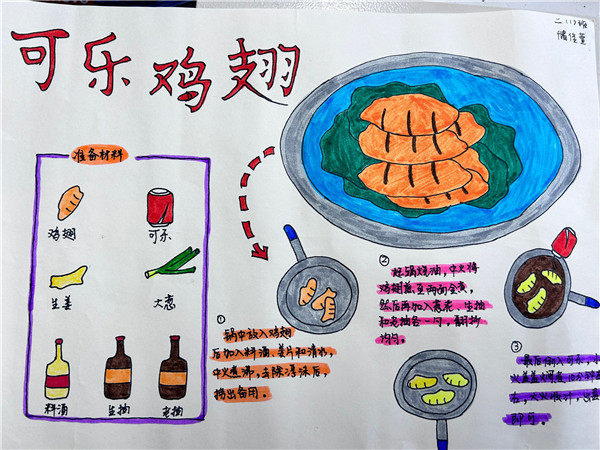 可乐鸡翅
二（1）班
准备材料
鸡翅
可乐
生姜
大葱
料酒
生抽
老抽
①
锅中放入鸡翅
后加入料酒、姜片和清水，
中火煮沸，去除浮沫后，
捞出备用。
②
起锅烧油，中火将
鸡翅煎至两面金黄，
然后再加入葱花、生抽
和老抽各一勺，翻拌
均匀。
③
最后倒入可乐，小
火盖盖焖煮10分钟左
右，大火收汁，出
即可。